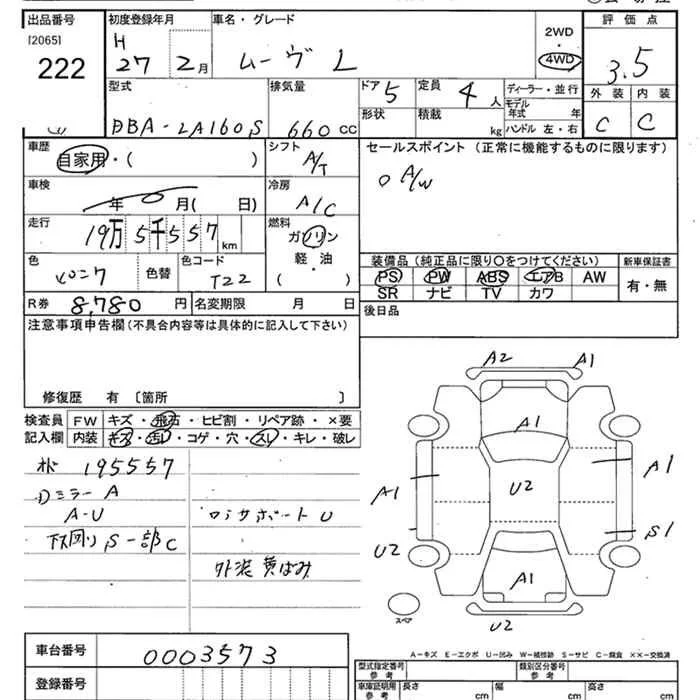 出品番号 初度登録年月 車名・グレード 2WD 評価点
[2065] H
222 27 2月 ムーヴ L 4WD 3.5
型式 排気量 ドア 5 定員 4人 ディーラー・並行 外装 内装
DBA-LA160S 660CC 形状 積載 kg モデル年式 年 C C
ハンドル 左・右
車歴 シフト セールスポイント (正常に機能するものに限ります)
自家用・( ) A/T o A/W
車検 年 月( 日) 冷房 A/C
走行 19万5千557km 燃料
ガソリン・軽油 ( )
色 色替 色コード T22
装備品 (純正品に限り○をつけてください) 新車保証書
PS PW ABS エアB AW 有・無
SR ナビ TV カワ
R券 8,780円 名変期限 月 日 後日品
注意事項申告欄(不具合内容等は具体的に記入して下さい)
修復歴 有 〔箇所 〕
検査員 FW キズ・飛石・ヒビ割・リペア跡・×要
記入欄 内装 キズ・汚レ・コゲ・穴・スレ・キレ・破レ
195557
Dミラー A
A-U
下回り S一部C
ロッサポート U
外装黄ばみ
A2 A1
A1
A1 U2 A1
U2 S1
A1
U2
スペア
A-キズ E-エクボ U-凹み W-補修跡 S-サビ C-腐食 ××-交換済
車台番号 0003573
登録番号
型式指定番号 参考 類別区分番号 参考
車庫証明用 参考 長さ cm 幅 cm 高さ cm